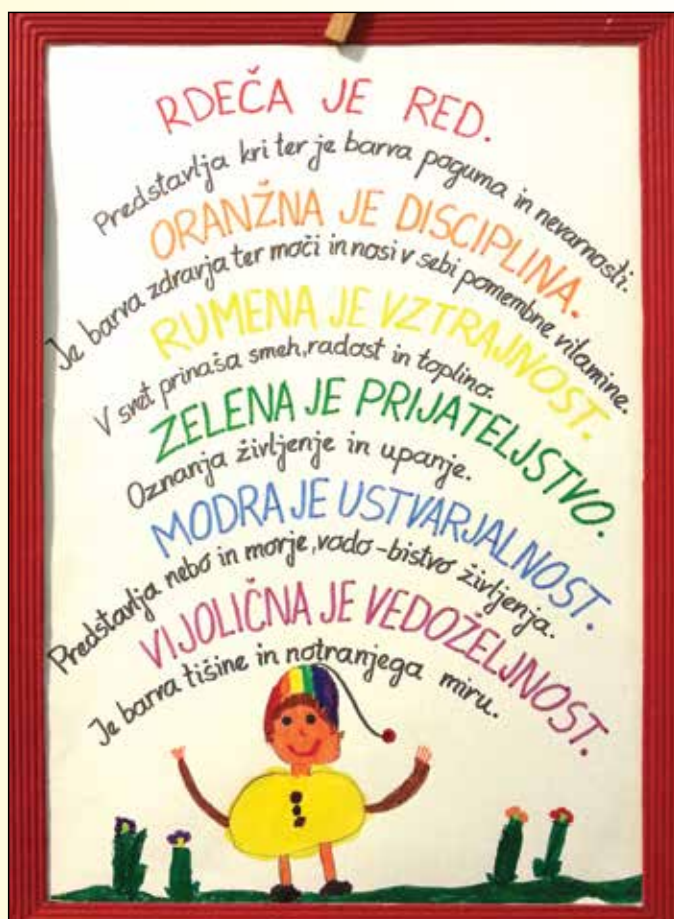 RDEČA JE RED.
Predstavlja kri ter je barva poguma in nevarnosti.
ORANŽNA JE DISCIPLINA.
Je barva zdravja ter moči in nosi v sebi pomembne vitamine.
RUMENA JE VZTRAJNOST.
V svet prinaša smeh, radost in toplino.
ZELENA JE PRIJATELJSTVO.
Oznanja življenje in upanje.
MODRA JE USTVARJALNOST.
Predstavlja nebo in morje, vodo - bistvo življenja.
VIJOLIČNA JE VEDOŽELJNOST.
Je barva tišine in notranjega miru.